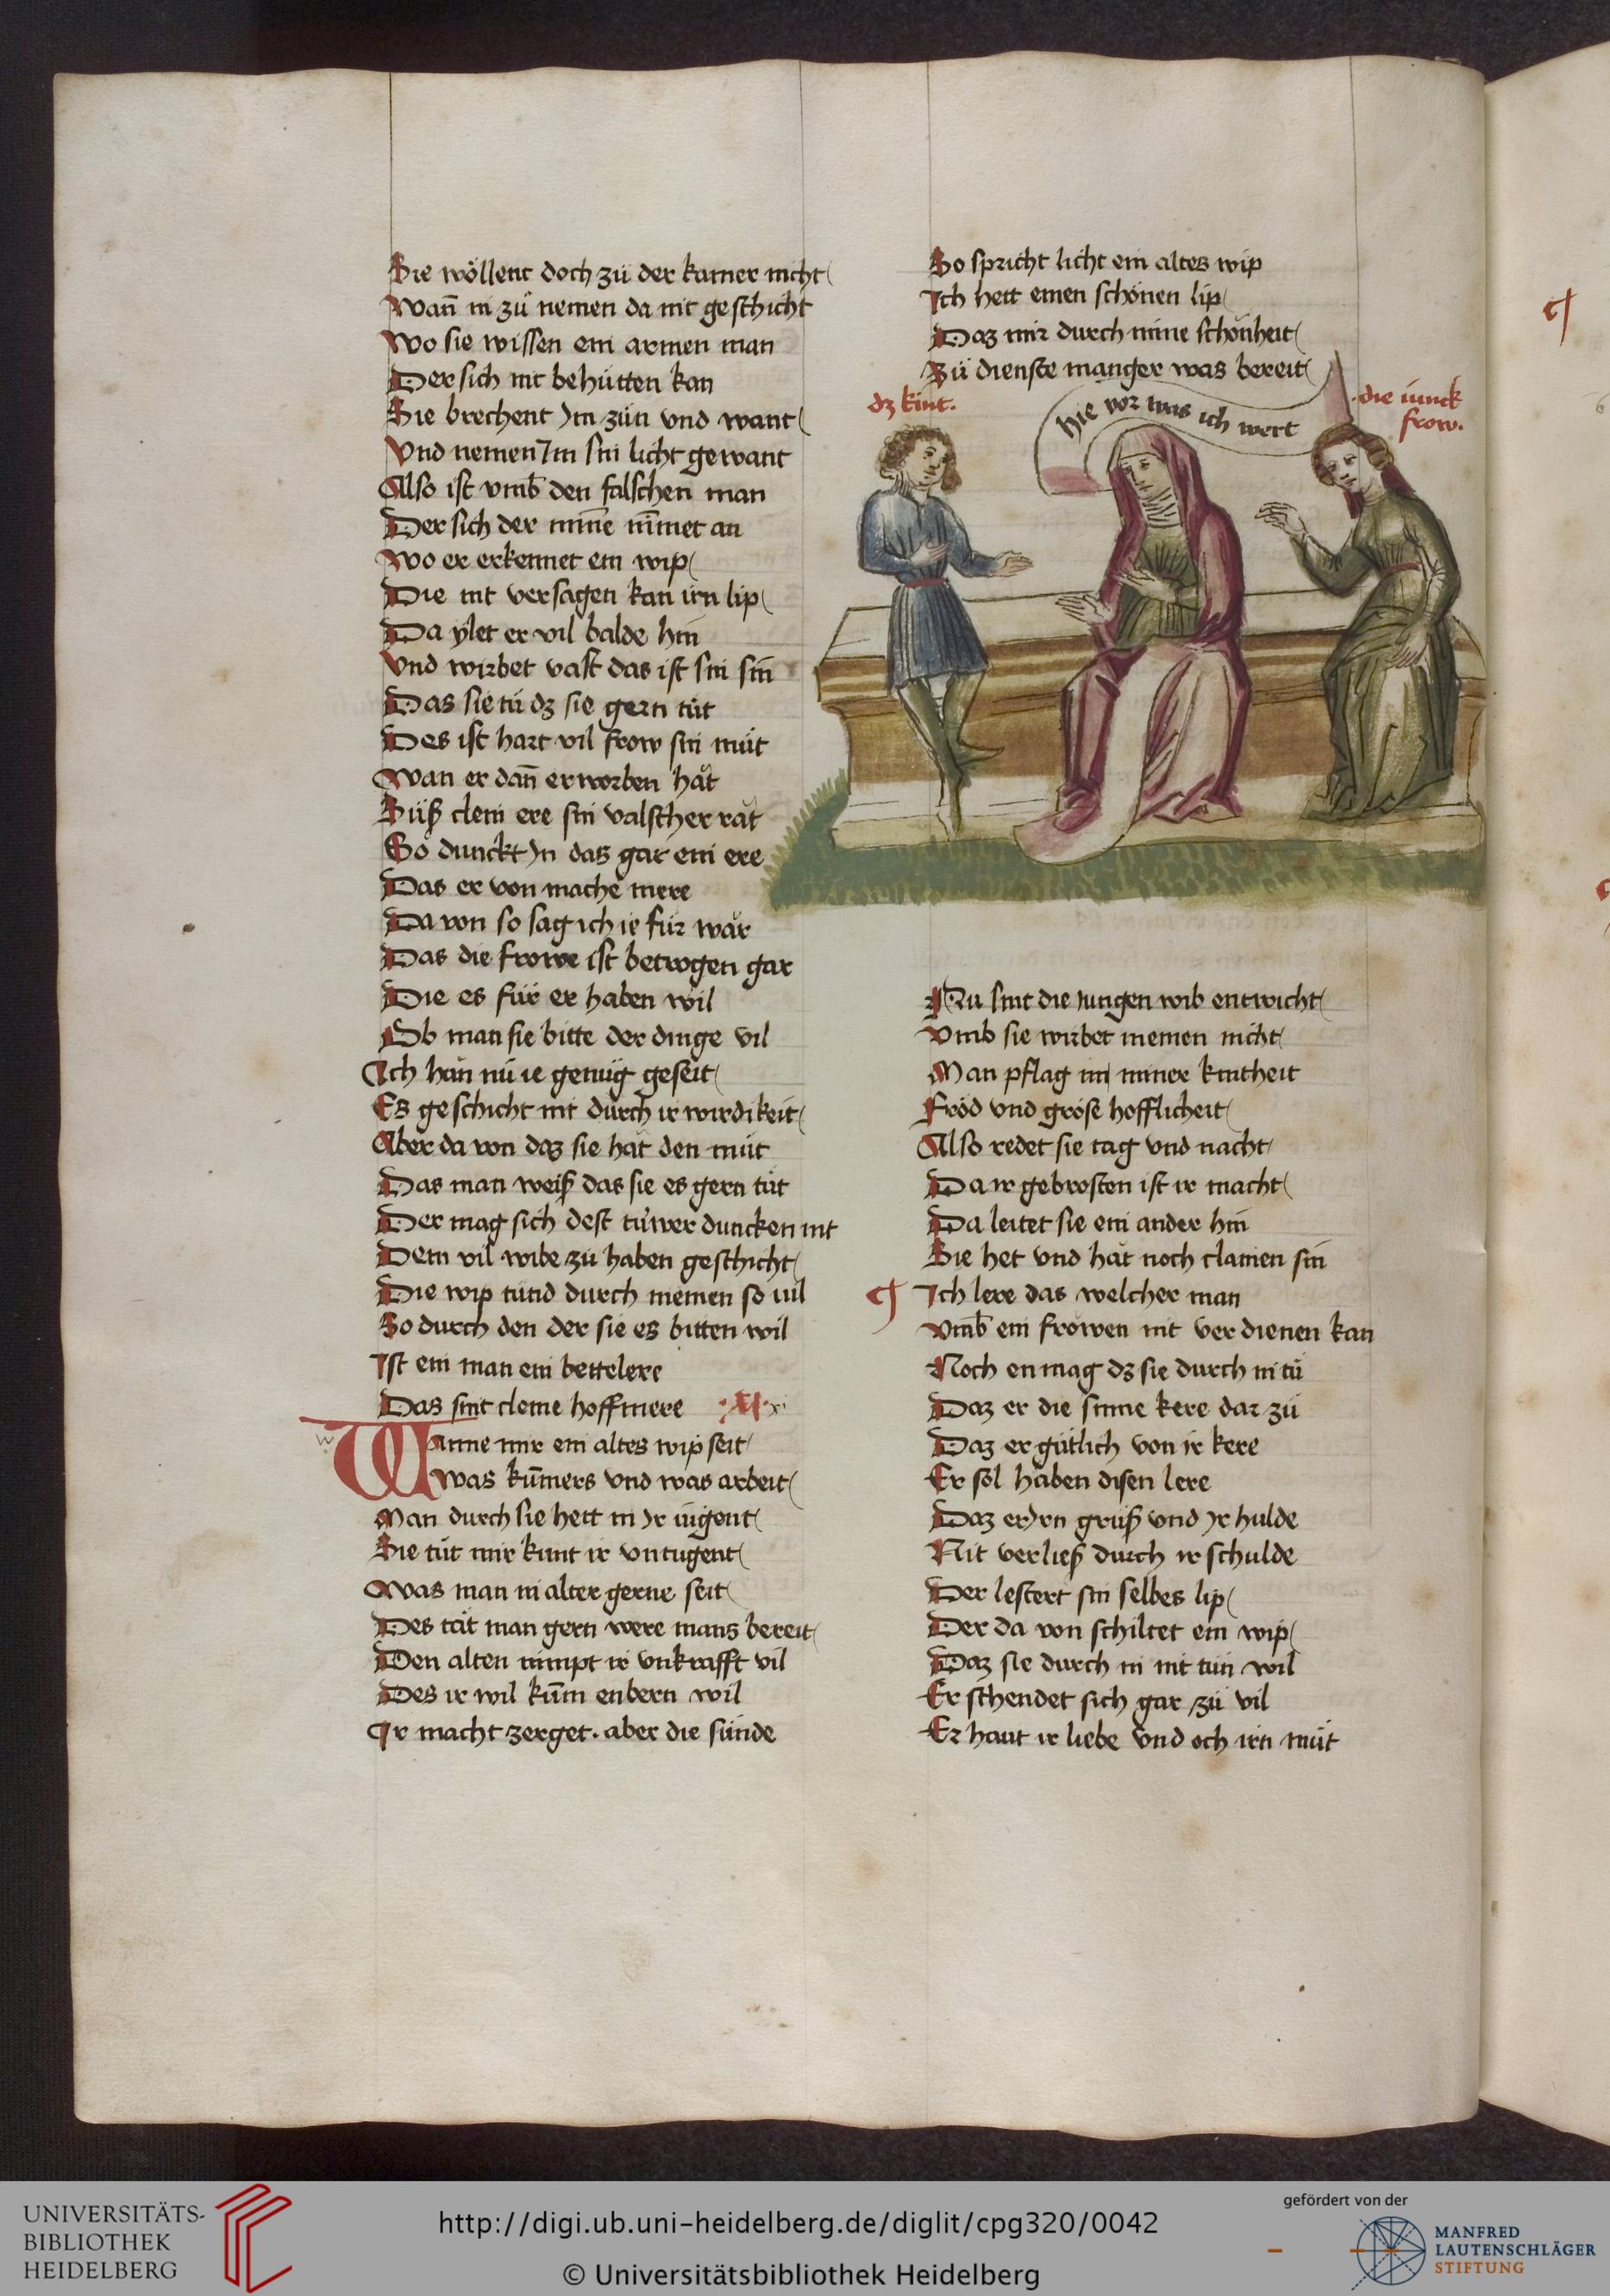 Sie wöllent doch zü der kamer nicht
Wañ in zü nemen da nit geschicht
Wo sie wissen ein armen man
Der sich nit behütten kan
Sie brechent Im zün vnd want
Vnd nemen Im sin licht gewant
Also ist vmb den falschen man
Der sich der mīne nīmet an
Wo er erkennet ein wip
Die nit versagen kan irn lip
Da ylet er vil balde hin
Vnd wirbet vast das ist sin sin
Das sie tü dz sie gern tüt
Des ist hart vil frow sin müt
Wan er dañ erworben hät
Süß clein ere sin valscher rät
So dunckt In das gar ein ere
Das er von mache mere
Da von so sag ich ie für wär
Das die frowe ist betrogen gar
Die es für er haben wil
Ob man sie bitte der dinge vil
Ich hän nü ie genüg geseit
Es geschicht nit durch ir wirdikeit
Aber da von daz sie hät den müt
Das man weiß das sie es gern tüt
Der mag sich dest tüwer duncken nit
Dem vil wibe zü haben geschicht
Die wip tünd durch niemen so vil
So durch den der sie es bitten wil
Ist ein man ein bettelere
Das sint cleine hoffmere ·XI· xi
w
Wanne mir ein altes wip seit
was kūmers vnd was arbeit
Man durch sie hett in Ir iügent
Sie tüt mir kunt ir vntugent
Was man in alter gerne seit
Des tät man gern were mans bereit
Den alten nimpt ir vnkrafft vil
Des ir wil kūm enbern wil
Ir macht zerget. aber die sünde
So spricht licht ein altes wip
Ich hett einen schönen lip
Daz mir durch mine schönheit
Zü dienste manger was bereit
dz kint.
hie vor was ich wert
die iunck
frow.
Nu sint die Iungen wib entwicht
Vmb sie wirbet niemen nicht
Man pflag in miner kintheit
Fröd vnd gröse hofflicheit
Also redet sie tag vnd nacht
Da ir gebrosten ist ir macht
Da leitet sie ein ander hin
Sie het vnd hät noch clainen sin
¶ Ich lere das welcher man
Vmb ein frowen nit verdienen kan
Noch en mag dz sie durch in tü
Daz er die sinne kere dar zü
Daz er gütlich von ir kere
Er sol haben disen lere
Daz er Irn grüß vnd Ir hulde
Nit verließ durch ir schulde
Der lestert sin selbes lip
Der da von schiltet ein wip
Daz sie durch in nit tün wil
Er schendet sich gar zü vil
Er hant ir liebe vnd och irn müt
UNIVERSITÄTS-
BIBLIOTHEK
HEIDELBERG
http://digi.ub.uni-heidelberg.de/diglit/cpg320/0042
© Universitätsbibliothek Heidelberg
gefördert von der
MANFRED
LAUTENSCHLÄGER
STIFTUNG